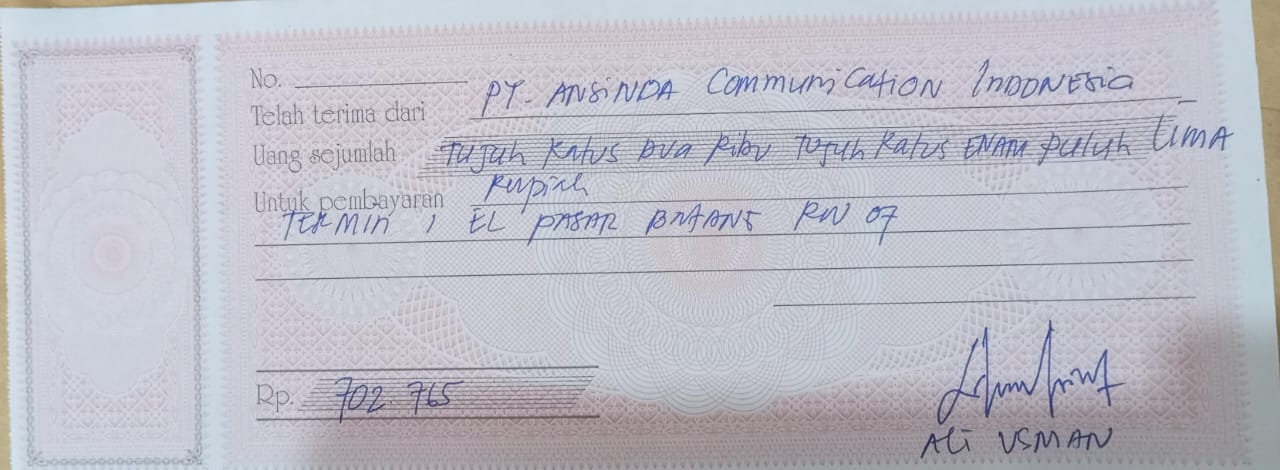 No.
Telah terima dari PT. ANSINDA Communication Indonesia
Uang sejumlah Tujuh Ratus Dua Ribu Tujuh Ratus ENAM Puluh Lima
Rupiah
Untuk pembayaran
TERMIN 1 EL PASAR RW 07
Rp. 702 765
ALI USMAN